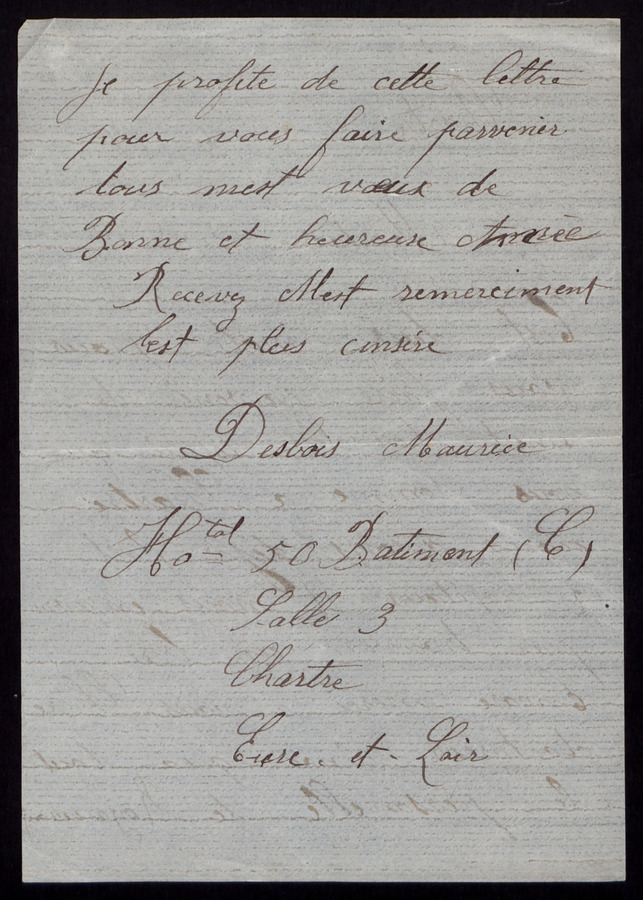 Je profite de cette lettre
pour vous faire parvenir
tous mest vœux de
Bonne et heureuse Année
Recevez Mest remerciment
lest plus cinsére
Desbois Maurice
Hotal 50 Batiment (C)
Salle 3
Chartre
Eure et-Loir